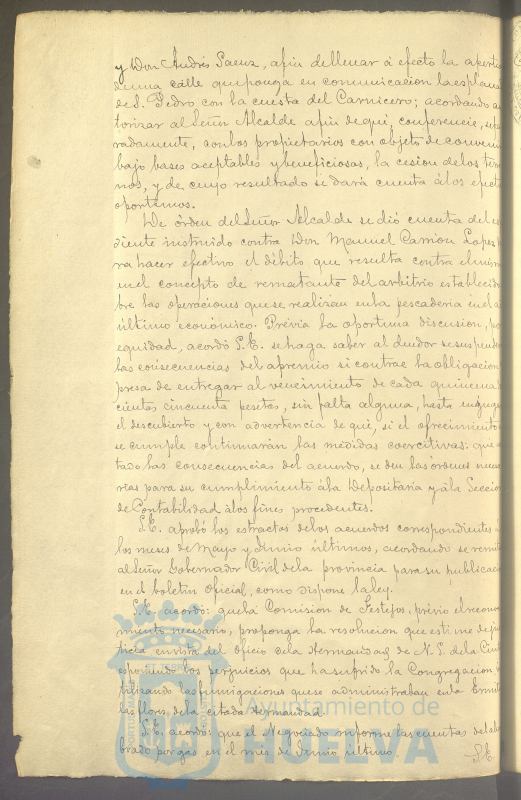 y Don Andrés Saenz, afin de llevar á efecto la apertu
de una calle que ponga en comunicacion la esplana
de S. Pedro, con la cuesta del Carnicero; acordando au
torizar al Señor Alcalde afin de que, conferencie, sepa
radamente, con los propietarios con objeto de convenir
bajo bases aceptables y beneficiosas, la cesion de los terre
nos, y de cuyo resultado se dará cuenta á los efect
oportunos.
De órden del Señor Alcalde se dió cuenta del es
diente instruido contra Don Manuel Carrion Lopez
ra hacer efectivo el débito que resulta contra el mism
en el concepto de rematante del arbitrio establecid
bre las operaciones que se realizan en la pescaderia en el
último económico. Prévia la oportuna discusion,
equidad, acordó S.E. se haga saber al deudor se suspende
las consecuencias del apremio si contrae la obligacion
presa de entregar al vencimiento de cada quincena
cientas cincuenta pesetas, sin falta alguna, hasta
el descubierto y con advertencia de que, si el ofrecimiento
se cumple continuarán las medidas coercitivas: que
tado las consecuencias del acuerdo, se den las órdenes nece
rias para su cumplimiento á la Depositaria y á la Seccion
de Contabilidad á los fines procedentes.
S.E. aprobó los estractos de los acuerdos correspondientes
los meses de Mayo y Junio últimos, acordando se remit
al Señor Gobernador Civil de la provincia para su publicac
en el boletin Oficial, como dispone la ley.
S.E. acordó: que la Comision de Festejos, prévio el recono
miento necesario, proponga la resolucion que estime de ju
ticia en vista del Oficio de la Hermandad de N. S. de la Cin
esponiendo los perjuicios que ha sufrido la Congregacion
las fumigaciones que se administraban en la Ermit
de la citada Hermandad.
S.E. acordó: que el Negociado informe las cuentas del al
brado por gas en el mes de Junio último.
S.E.
Ayuntamiento de
HUELVA